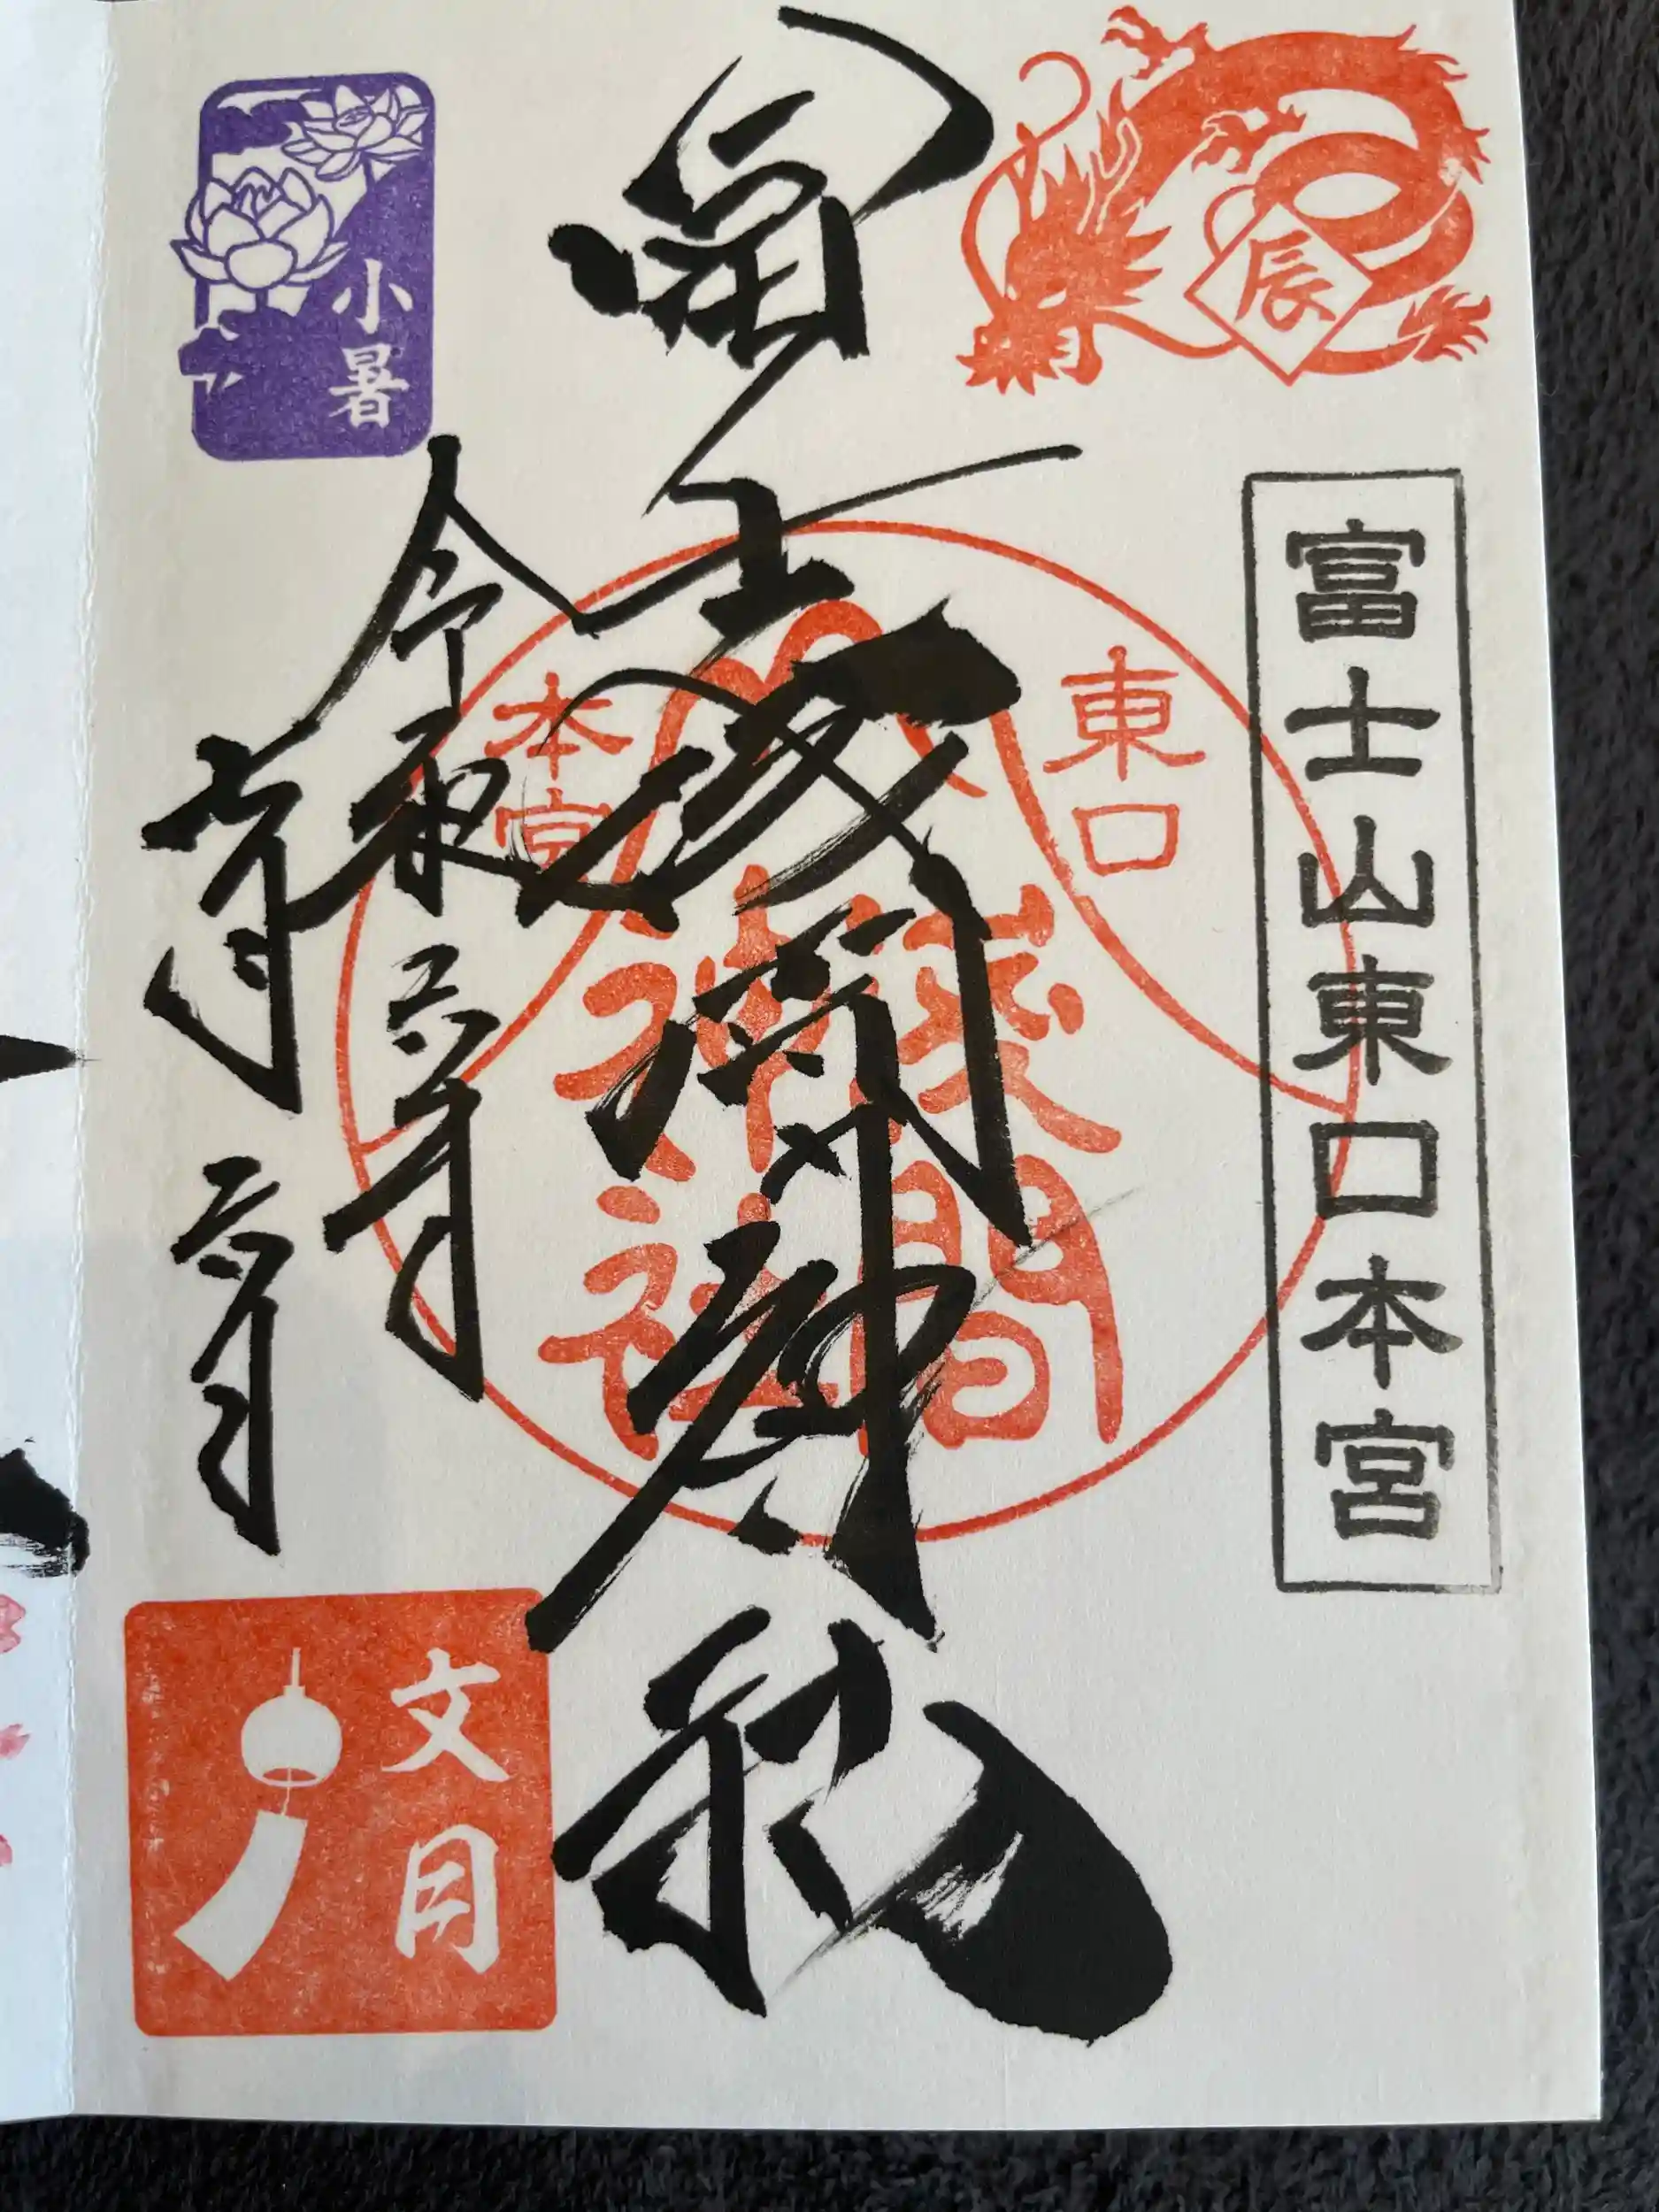 辰
富士山東口本宮
冨士浅間神社
東口
本宮
淺間
神社
令和六年
七月六日
小暑
文月